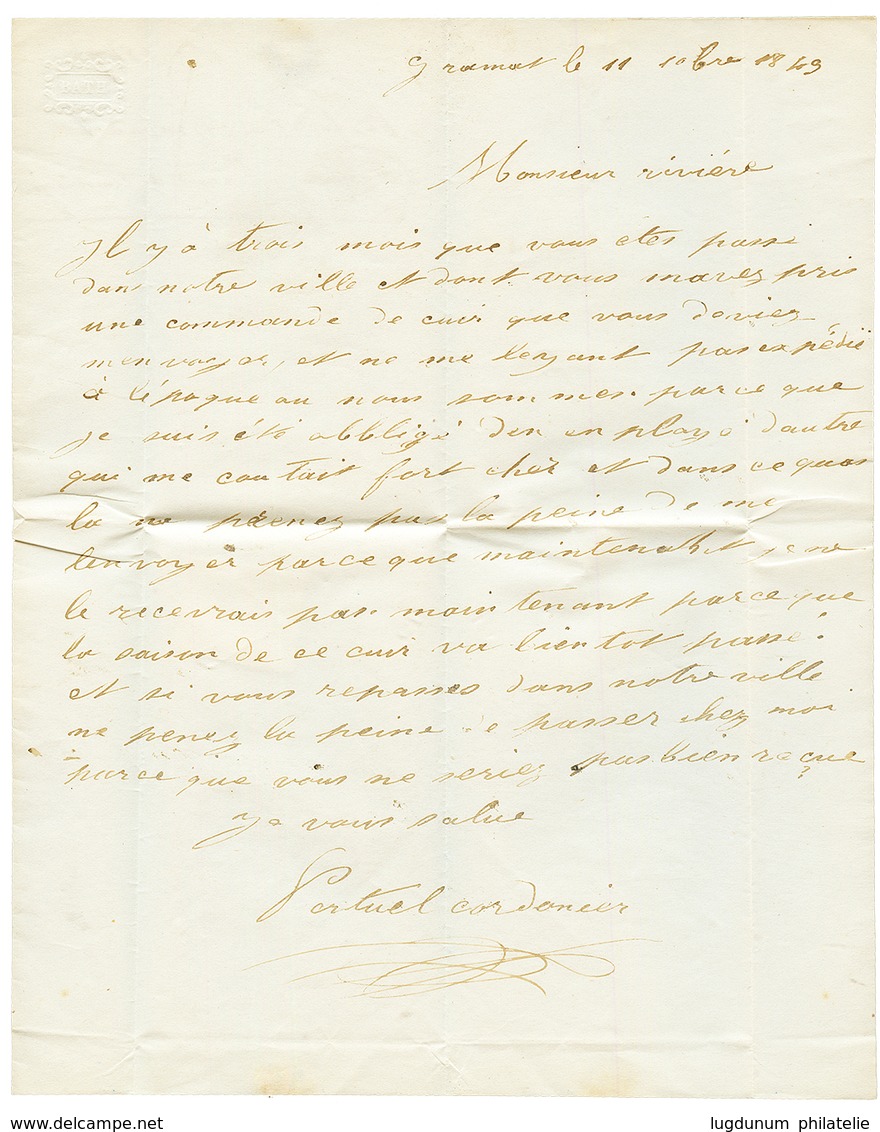 BATH
Gramat le 11 10bre 1849
Monsieur rivière
Il y à trois mois que vous etes passé
dans notre ville et dont vous mavez pris
une commande de cuir que vous deviez
menvoyer, et ne me leyant pas expédié
à lépoque ou nous sommes parce que
je suis été obbligé den employé dautre
qui me coutait fort cher et dans ce quas
la ne prenez pas la peine de me
lenvoyer parce que maintenant je ne
le recevrais pas maintenant parce que
la saison de ce cuir va bientot passé.
et si vous repasses dans notre ville
ne penez la peine de passer chez moi
parce que vous ne seriez pas bien reçue
Je vous salue
Pertuel cordonier
www.delcampe.net
lugdunum philatelie